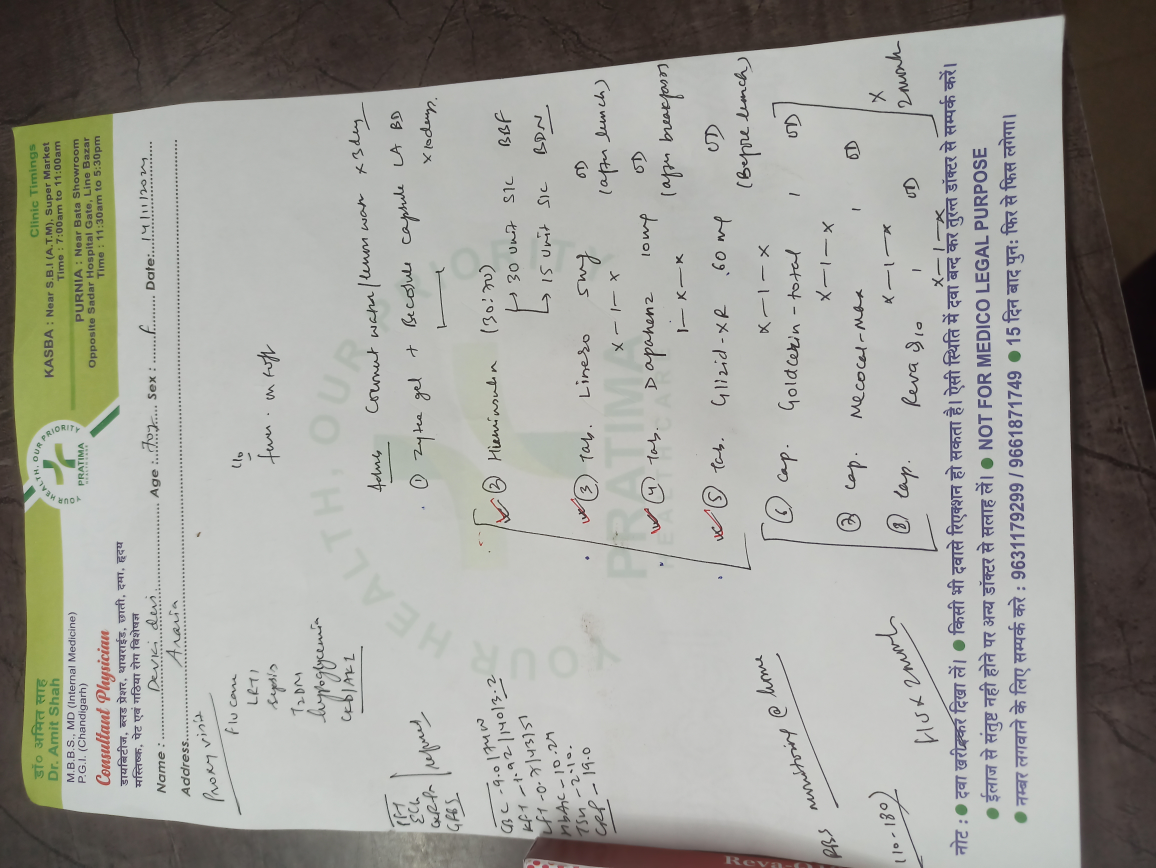 डॉ० अमित साह
Dr. Amit Shah
M.B.B.S., MD (Internal Medicine)
P.G.I. (Chandigarh)
Consultant Physician
डायबिटीज, ब्लड प्रेशर, थायराईड, छाती, दमा, हृदय
मस्तिष्क, पेट एवं गठिया रोग विशेषज्ञ
YOUR HEALTH, OUR PRIORITY
PRATIMA
Clinic Timings
KASBA : Near S.B.I (A.T.M), Super Market
Time : 7:00am to 11:00am
PURNIA : Near Bata Showroom
Opposite Sadar Hospital Gate, Line Bazar
Time : 11:30am to 5:30pm
Name : Devki devi Age : 70y Sex : f Date: 14/11/2024
Address Araria
Proxy visit
F/U case
LRTI
sepsis
T2DM
hypoglycemia
CKD/AKI
c/o
fever
ECG
GRBS
refused
CBC - 9.0
KFT - 1.92/140/3.2
LFT - 0.7/43/51
HbA1c - 10.24
TSH - 2.10
CRP - 19.0
RBS monitoring @ home
(110-180)
F/U x 2 month
Advice
Coconut water/lemon water x 3day
① Zytee gel + Becosule capsule LA BD
x 10days
② Huminsulin (30:70)
30 unit S/C BBF
15 unit S/C BDN
③ Tab. Lineso 5mg OD
x-1-x (after lunch)
④ Tab. Dapahenz 10mg OD
1-x-x (after breakfast)
⑤ Tab. Glizid-XR 60mg OD
x-1-x (Before lunch)
⑥ Cap. Goldcekin-total 1 OD
x-1-x
⑦ Cap. Mecocal-Max 1 OD
x-1-x
⑧ Cap. Reva Q10 1 OD
x-1-x
x 2 month
YOUR HEALTH, OUR PRIORITY
PRATIMA
HEALTHCARE
नोट : ● दवा खरीदकर दिखा लें। ● किसी भी दवासे रिएक्शन हो सकता है। ऐसी स्थिति में दवा बन्द कर तुरन्त डॉक्टर से सम्पर्क करें।
● ईलाज से संतुष्ट नही होने पर अन्य डॉक्टर से सलाह लें। ● NOT FOR MEDICO LEGAL PURPOSE
● नम्बर लगवाने के लिए सम्पर्क करे : 9631179299 / 9661871749 ● 15 दिन बाद पुन: फिर से फिस लगेगा।
Reva-Q